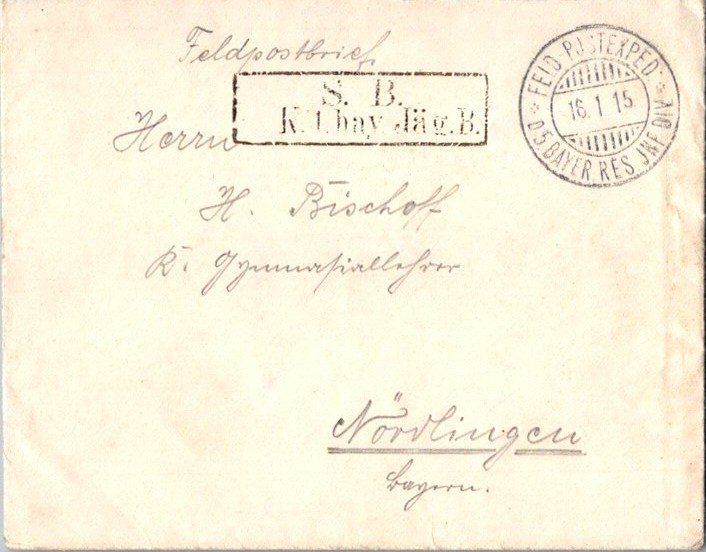 Feldpostbrief
S. B.
K. 1. bay. Jäg. B.
FELD POSTEXPED
16.1 15
* D 5. BAYER. RES. INF DIV *
Herrn
H. Bischoff
K. Gymnasiallehrer
Nördlingen
Bayern.